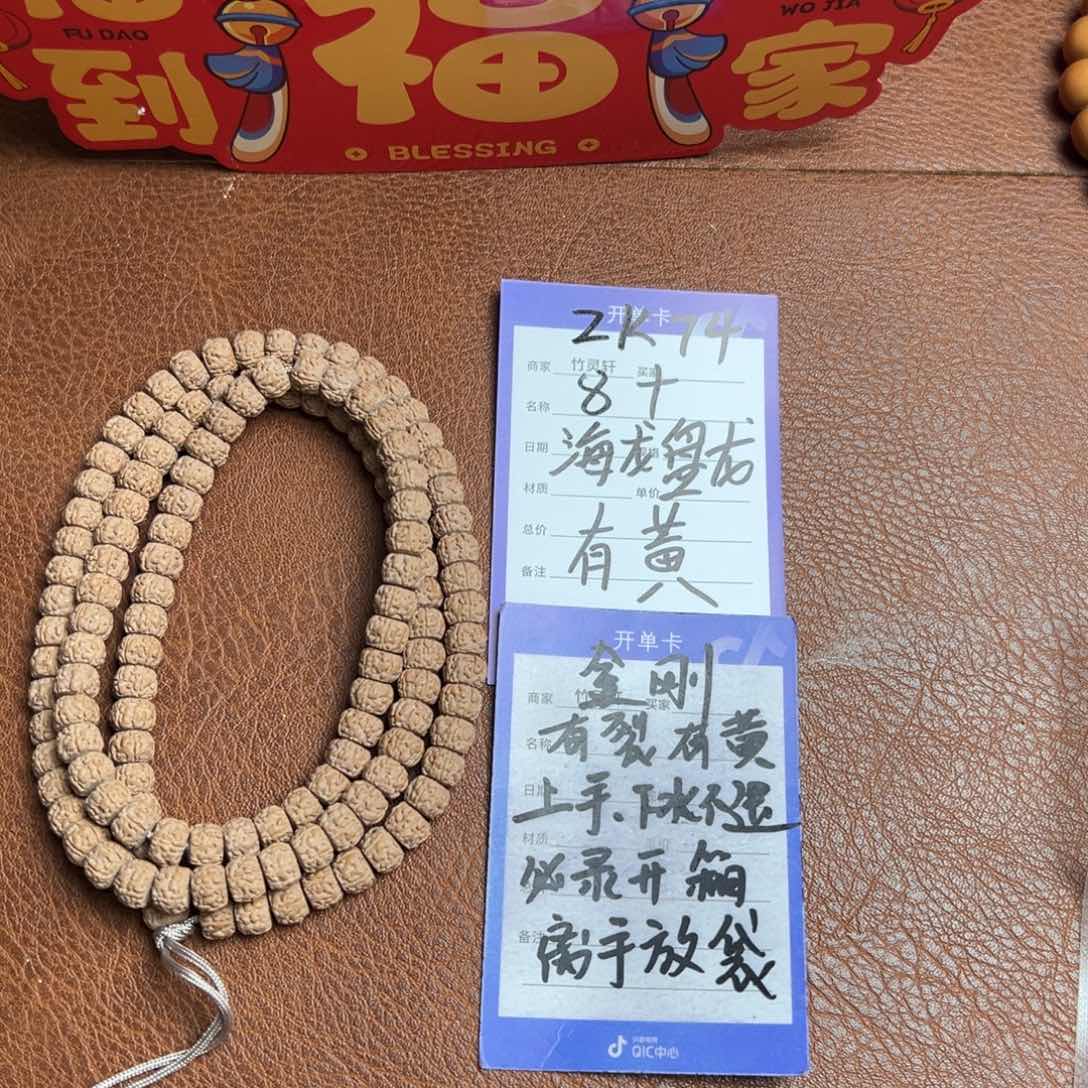 FU DAO
WO JIA
到 福 家
BLESSING
开单卡
ZK74
商家 竹灵轩 买家
8十
名称
海龙盘龙
日期
材质 单价
总价
有黄
备注
开单卡
金刚
商家 竹灵轩 买家
有裂有黄
名称
日期
上手、下水不退
材质
必录开箱
备注
离手放袋
抖音电商
QIC中心